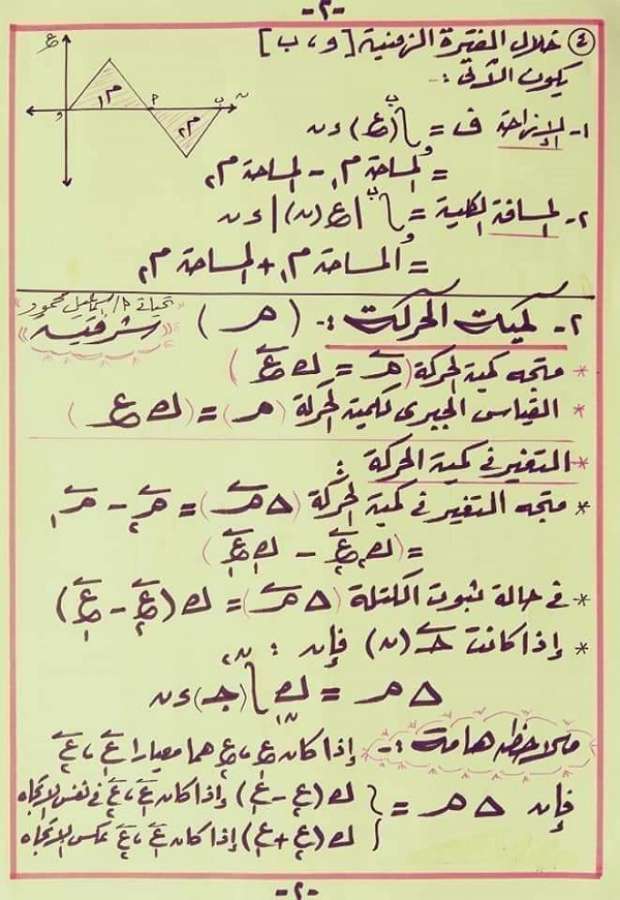 -٢-
٤ خلال الفترة الزمنية [و ، ب]
يكون الآتى :-
ع
م١
م٢
و
٢
ب
ن
١- الإزاحة ف = ∫وب (ع) ءن
= المساحة م١ - المساحة م٢
٢- المسافة الكلية = ∫وب |ع(ن)| ءن
= المساحة م١ + المساحة م٢
٢- كمية الحركة :- (مـ)
شرقية
* متجه كمية الحركة (مـ = ك ع)
* القياس الجبرى لكمية الحركة (مـ) = (ك ع)
* التغير فى كمية الحركة :
* متجه التغير فى كمية الحركة (Δمـ) = مـ٢ - مـ١
= (ك٢ ع٢ - ك١ ع١)
* فى حالة ثبوت الكتلة (Δمـ) = ك (ع٢ - ع١)
* إذا كانت جـ (ن) فإن :
Δمـ = ك ∫ن١ن٢ (جـ) ءن
ملاحظه هامة :- إذا كان ع١ ، ع٢ هما معيارا ع١ ، ع٢
فإن Δمـ = { ك (ع٢ - ع١) إذا كان ع١ ، ع٢ فى نفس الاتجاه
ك (ع٢ + ع١) إذا كان ع١ ، ع٢ عكس الاتجاه
-٢-